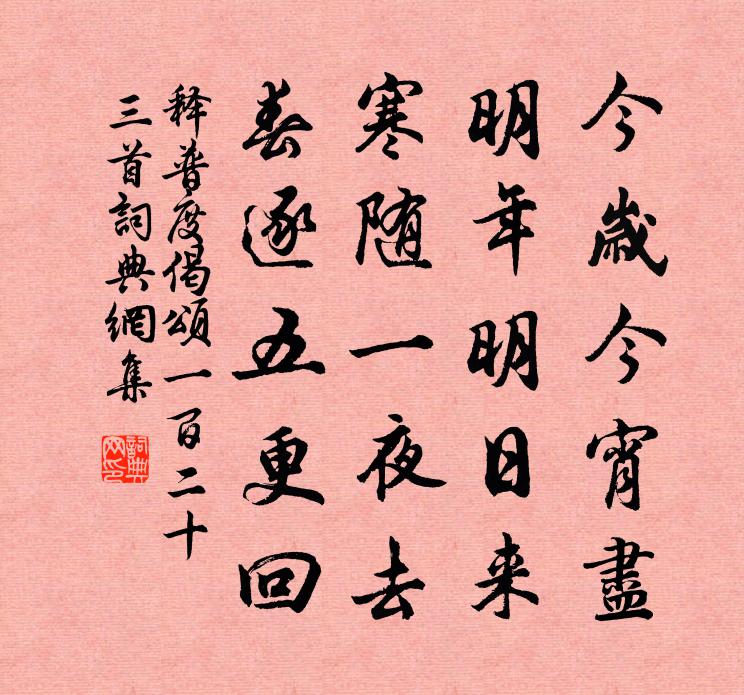 今歲今宵盡
明年明日来
寒随一夜去
春逐五更回
释普度偈頌一百二十
三首詞典網集
詞典网印